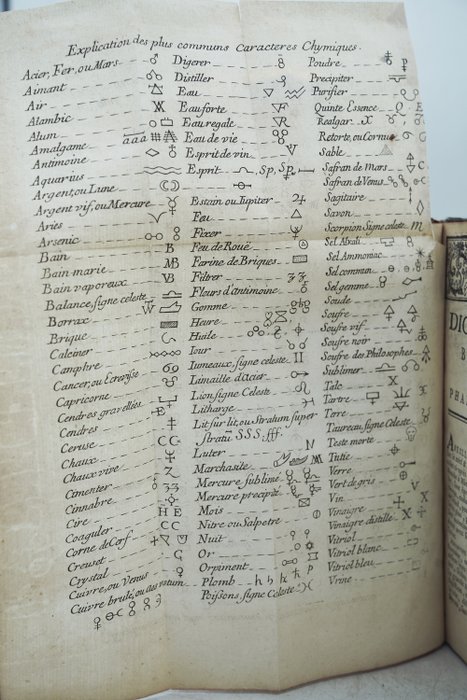 Explication des plus communs Caracteres Chymiques.
Acier, Fer, ou Mars
Aimant
Air
Alambic
Alum
Amalgame aaa
Antimoine
Aquarius
Argent, ou Lune
Argent vif, ou Mercure
Aries
Arsenic
Bain B
Bain marie MB
Bain vaporeux VB
Balance, signe celeste
Borrax
Brique
Calciner
Camphre
Cancer, ou Ecrevisse
Capricorne
Cendres gravellées
Cendres E
Ceruse
Chaux C
Chaux vive
Cimenter Z
Cinnabre 33
Cire
Coaguler HE
Corne de Cerf CC
Creuset
Crystal
Cuivre, ou Venus
Cuivre brulé, ou æs ustum
Digerer
Distiller
Eau
Eau forte
Eau regale
Eau de vie
Esprit de vin
Esprit Sp, Sp
Estain ou Jupiter
Feu
Fixer
Feu de Roue
Farine de Briques
Filtrer
Fleurs d'antimoine
Gomme
Heure
Huile
Jour
Jumeaux, signe celeste
Limaille d'Acier
Lion signe Celeste
Litharge
Lit sur lit, ou Stratum super
stratū SSS. fff.
Luter
Marchasite
Mercure sublimé
Mercure precipité
Mois
Nitre ou Salpetre
Nuit
Or
Orpiment
Plomb
Poissons, signe Celeste
Poudre
Precipiter
Purifier
Quinte Essence
Realgar
Retorte, ou Cornue
Sable
Safran de Mars
Safran de Venus
Sagitaire
Savon
Scorpion Signe celeste
Sel Alkali
Sel Ammoniac
Sel commun
Sel gemme
Soude
Soufre
Soufre vif
Soufre noir
Soufre des Philosophes
Sublimer
Talc X
Tartre
Terre
Taureau, signe Celeste
Teste morte
Tutie
Verre
Vert de gris
Vin
Vinaigre
Vinaigre distillé
Vitriol
Vitriol blanc
Vitriol bleu
Urine